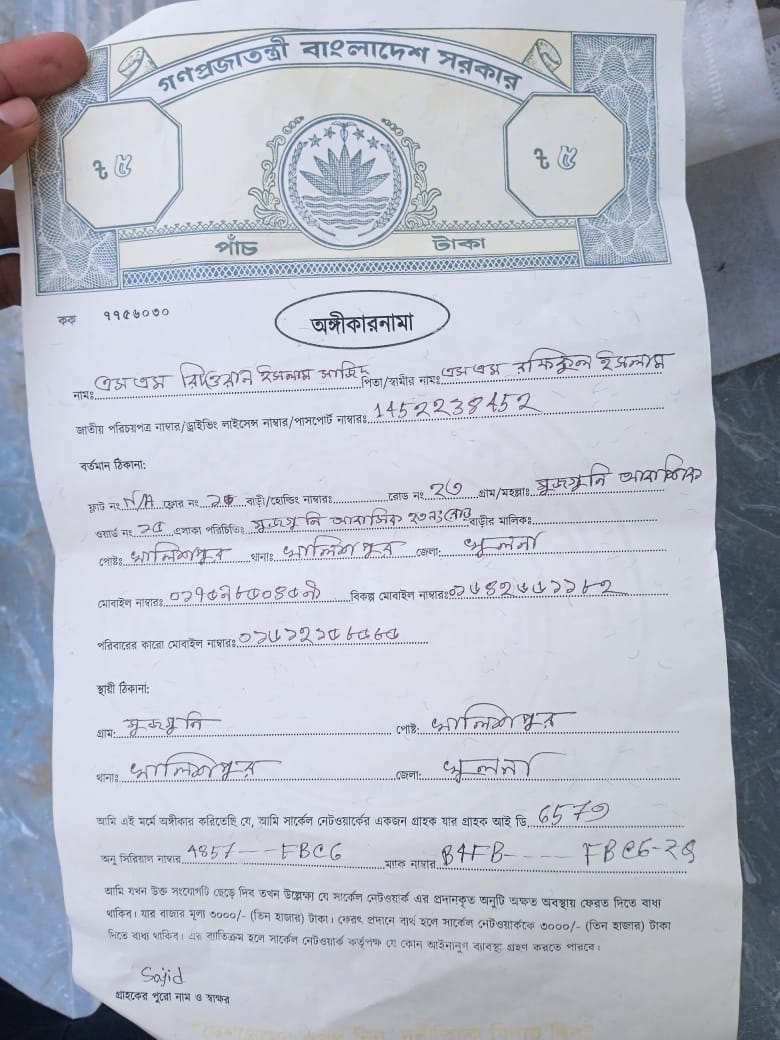 গণপ্রজাতন্ত্রী বাংলাদেশ সরকার
৳ ৫ ৳ ৫
পাঁচ টাকা
কক ৭৭৫৬০৩০
অঙ্গীকারনামা
নামঃ এস এম রিওয়ান ইসলাম সাজিদ পিতা/স্বামীর নামঃ এস এম রফিকুল ইসলাম
জাতীয় পরিচয়পত্র নাম্বার/ড্রাইভিং লাইসেন্স নাম্বার/পাসপোর্ট নাম্বারঃ 1452238452
বর্তমান ঠিকানা:
ফ্লাট নং N/A ফ্লোর নং বাড়ী/হোল্ডিং নাম্বারঃ রোড নং ২৩ গ্রাম/মহল্লাঃ মুজগুন্নি আবাসিক
ওয়ার্ড নং এলাকা পরিচিতিঃ মুজগুন্নি আবাসিক ২৩নং রোড বাড়ীর মালিকঃ
পোষ্টঃ খালিশপুর থানাঃ খালিশপুর জেলা: খুলনা
মোবাইল নাম্বারঃ বিকল্প মোবাইল নাম্বারঃ
পরিবারের কারো মোবাইল নাম্বারঃ
স্থায়ী ঠিকানা:
গ্রাম: মুজগুন্নি পোষ্ট: খালিশপুর
থানাঃ খালিশপুর জেলা: খুলনা
আমি এই মর্মে অঙ্গীকার করিতেছি যে, আমি সার্কেল নেটওয়ার্কের একজন গ্রাহক যার গ্রাহক আই ডি
অনু সিরিয়াল নাম্বার 4857---FBC6 ম্যাক নাম্বার B4FB-----FBC6-
আমি যখন উক্ত সংযোগটি ছেড়ে দিব তখন উল্লেখ্য যে সার্কেল নেটওয়ার্ক এর প্রদানকৃত অনুটি অক্ষত অবস্থায় ফেরত দিতে বাধ্য
থাকিব। যার বাজার মূল্য ৩০০০/- (তিন হাজার) টাকা। ফেরৎ প্রদানে ব্যর্থ হলে সার্কেল নেটওয়ার্ককে ৩০০০/- (তিন হাজার) টাকা
দিতে বাধ্য থাকিব। এর ব্যতিক্রম হলে সার্কেল নেটওয়ার্ক কর্তৃপক্ষ যে কোন আইনানুগ ব্যবস্থা গ্রহণ করতে পারবে।
Sajid
গ্রাহকের পুরো নাম ও স্বাক্ষর